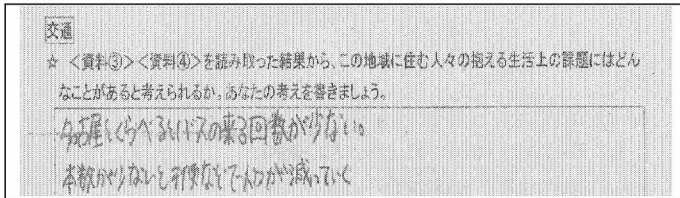 交通
☆ <資料③><資料④>を読み取った結果から、この地域に住む人々の抱える生活上の課題にはどん
なことがあると考えられるか、あなたの考えを書きましょう。
名古屋とくらべるとバスの来る回数が少ない。
本数が少ないと不便なので人口が減っていく